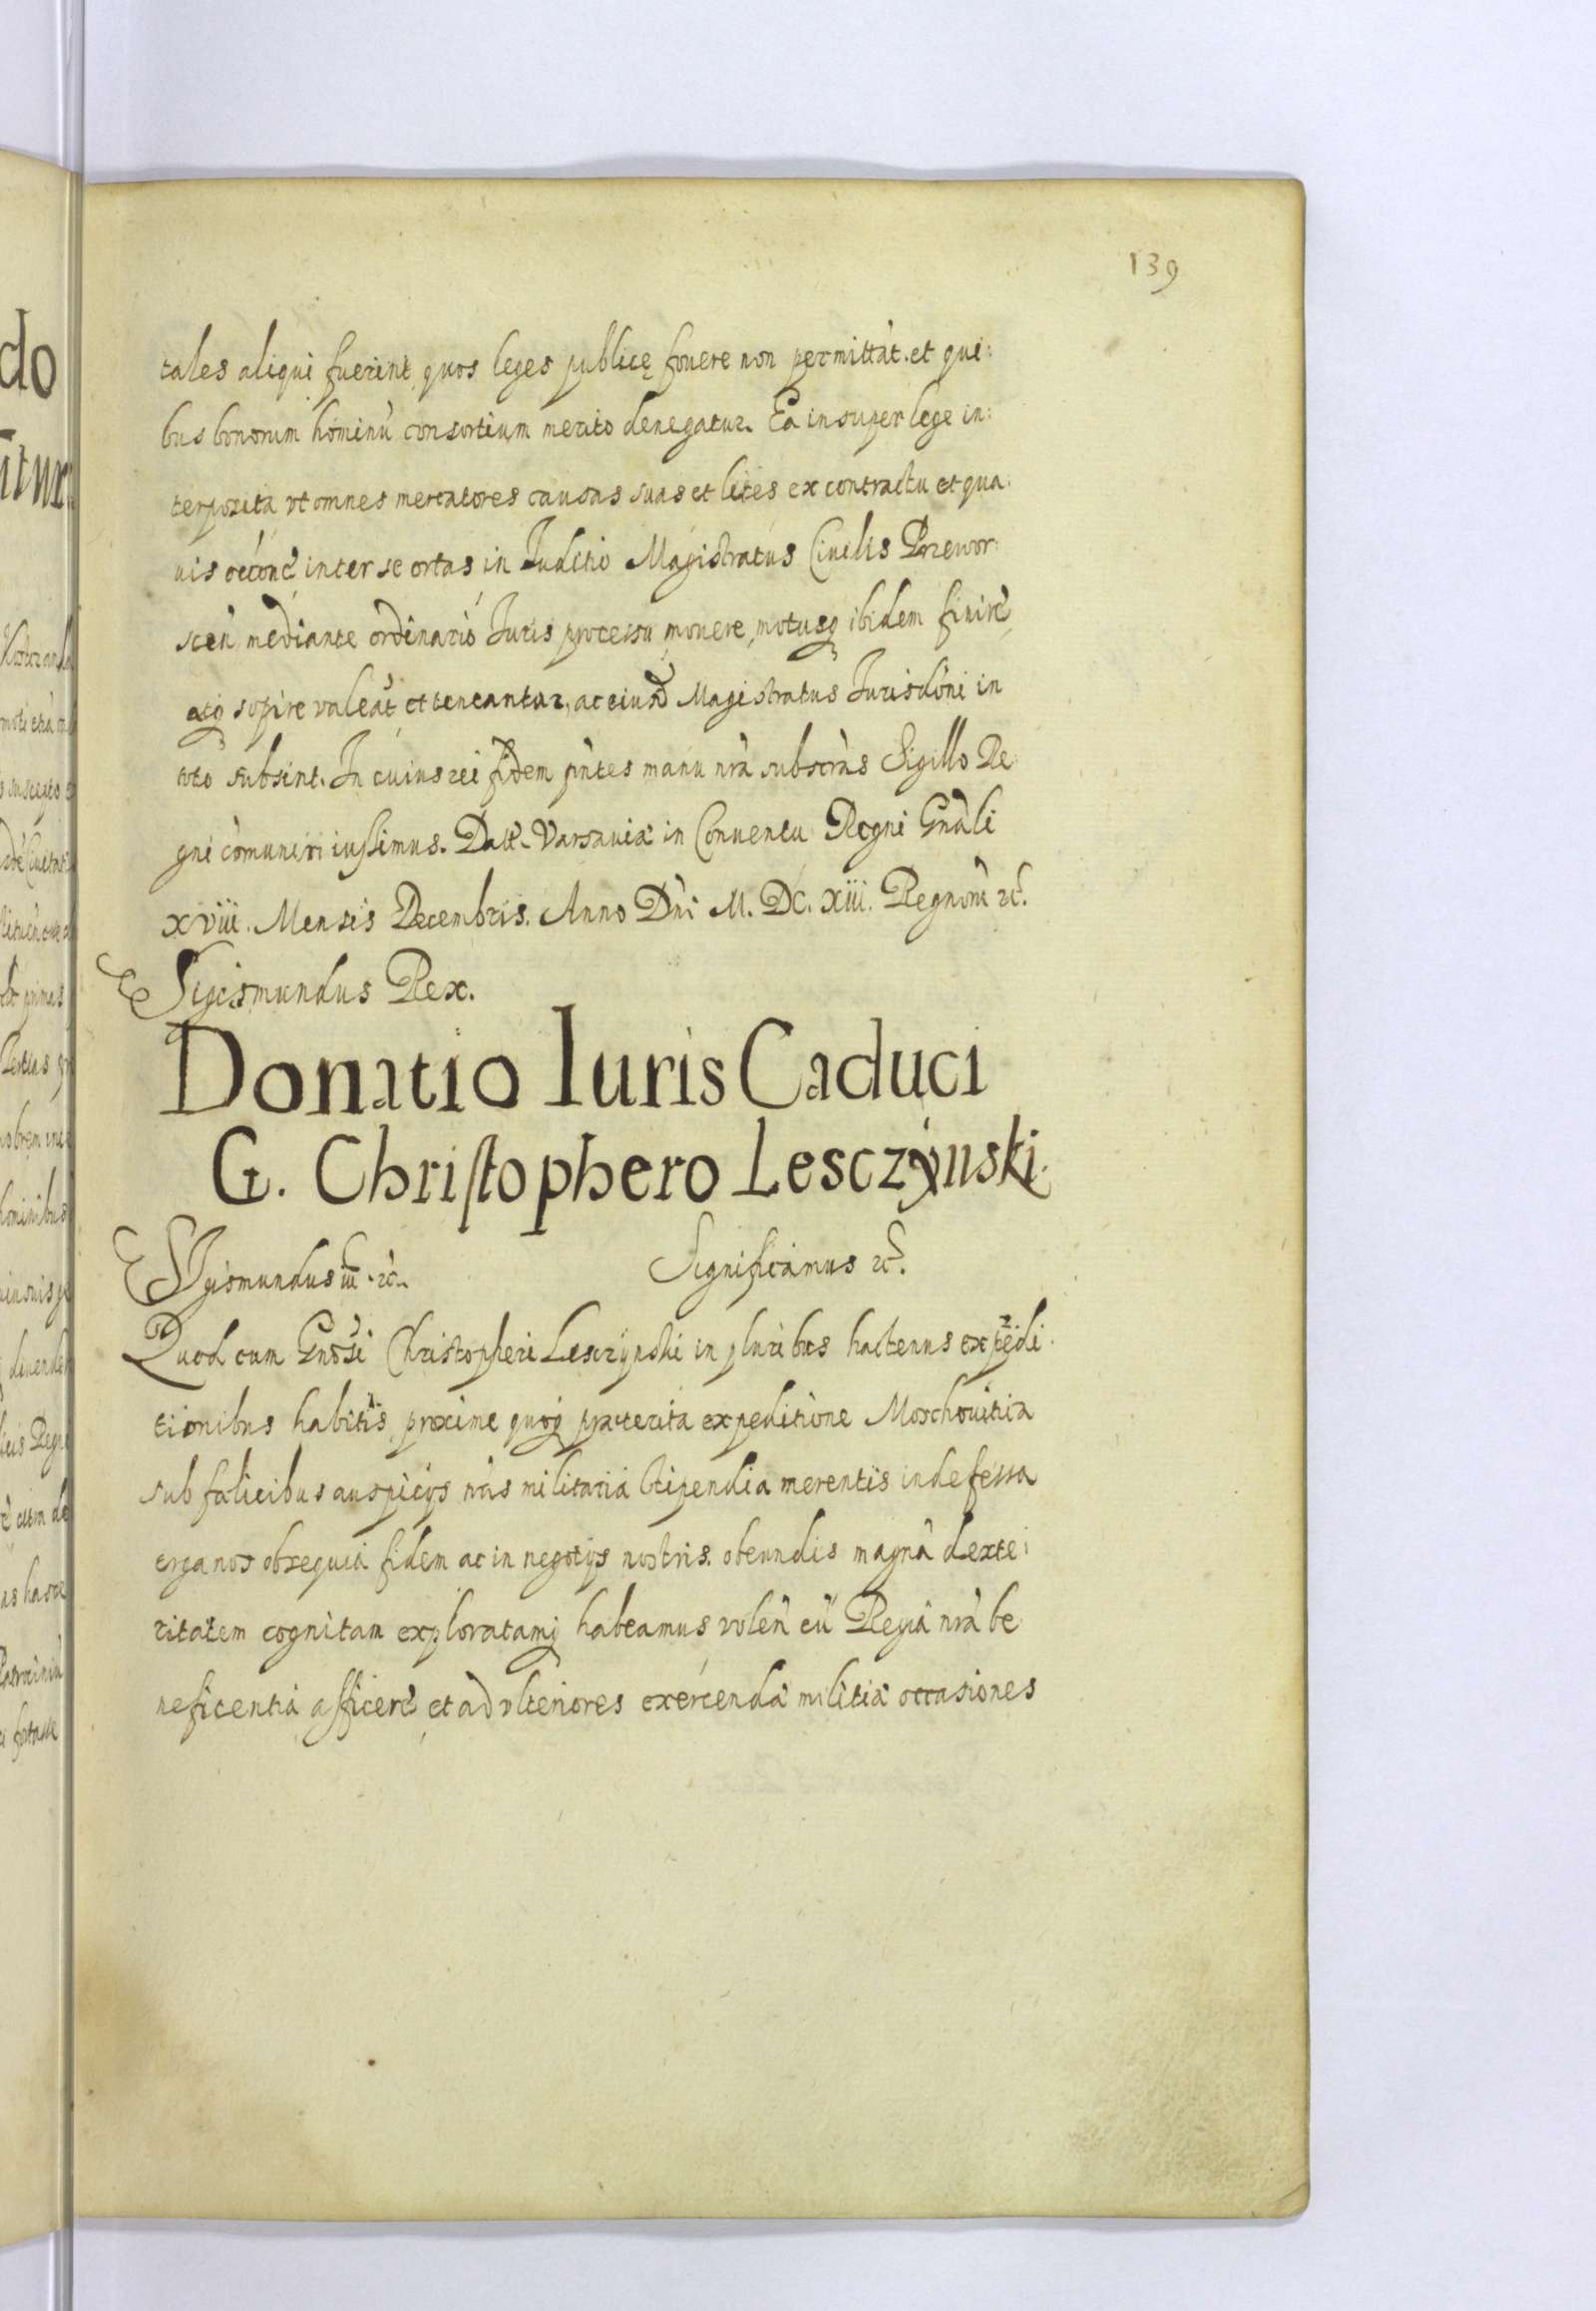 139
tales aliqui fuerint quos leges publicę fouere non permittàt. et qui:
bus bonorum hominù consortium merito denegatur. Ea insuper lege in:
terposita vt omnes mercatores causas suas et lites ex contractu et qua:
uis inter se ortas in Juditio Magistratus Ciuilis Przewor:
scen̄ mediante ordinario Juris processu mouere, motusq ibidem finire
atq sopire valeāt et teneantur, ac eiusd Magistratus Jurisdōni in
toto subsint. In cuius rei fidem pn̄tes manu nr̄a subscr̄as Sigillo Re
gni comuniri iussimus. Datt. Varsauiæ in Conuentu Regni Gnāli
XVIII. Mensis Decembris. Anno Dn̄i M. DC. XIII. Regnorū &c.
Sigismundus Rex.
Donatio Iuris Caduci
G. Christophero Lesczÿnski.
Sigismundus III. &c. Significamus &c.
Quod cum Gnōsi Christopheri Lesczÿnski in pluribus hactenus expedi:
tionibus habitis, proxime quoq præterita expeditione Moschouitica
sub fælicibus auspicÿs nr̄is militaria stipendia merentis indefessa
erga nos obsequia fidem ac in negotÿs nostris obeundis magnā dexte:
ritatem cognitam exploratamq habeamus volen̄ eū Regia nr̄a be
neficentia afficere et ad vlteriores exercendæ militiæ occasiones